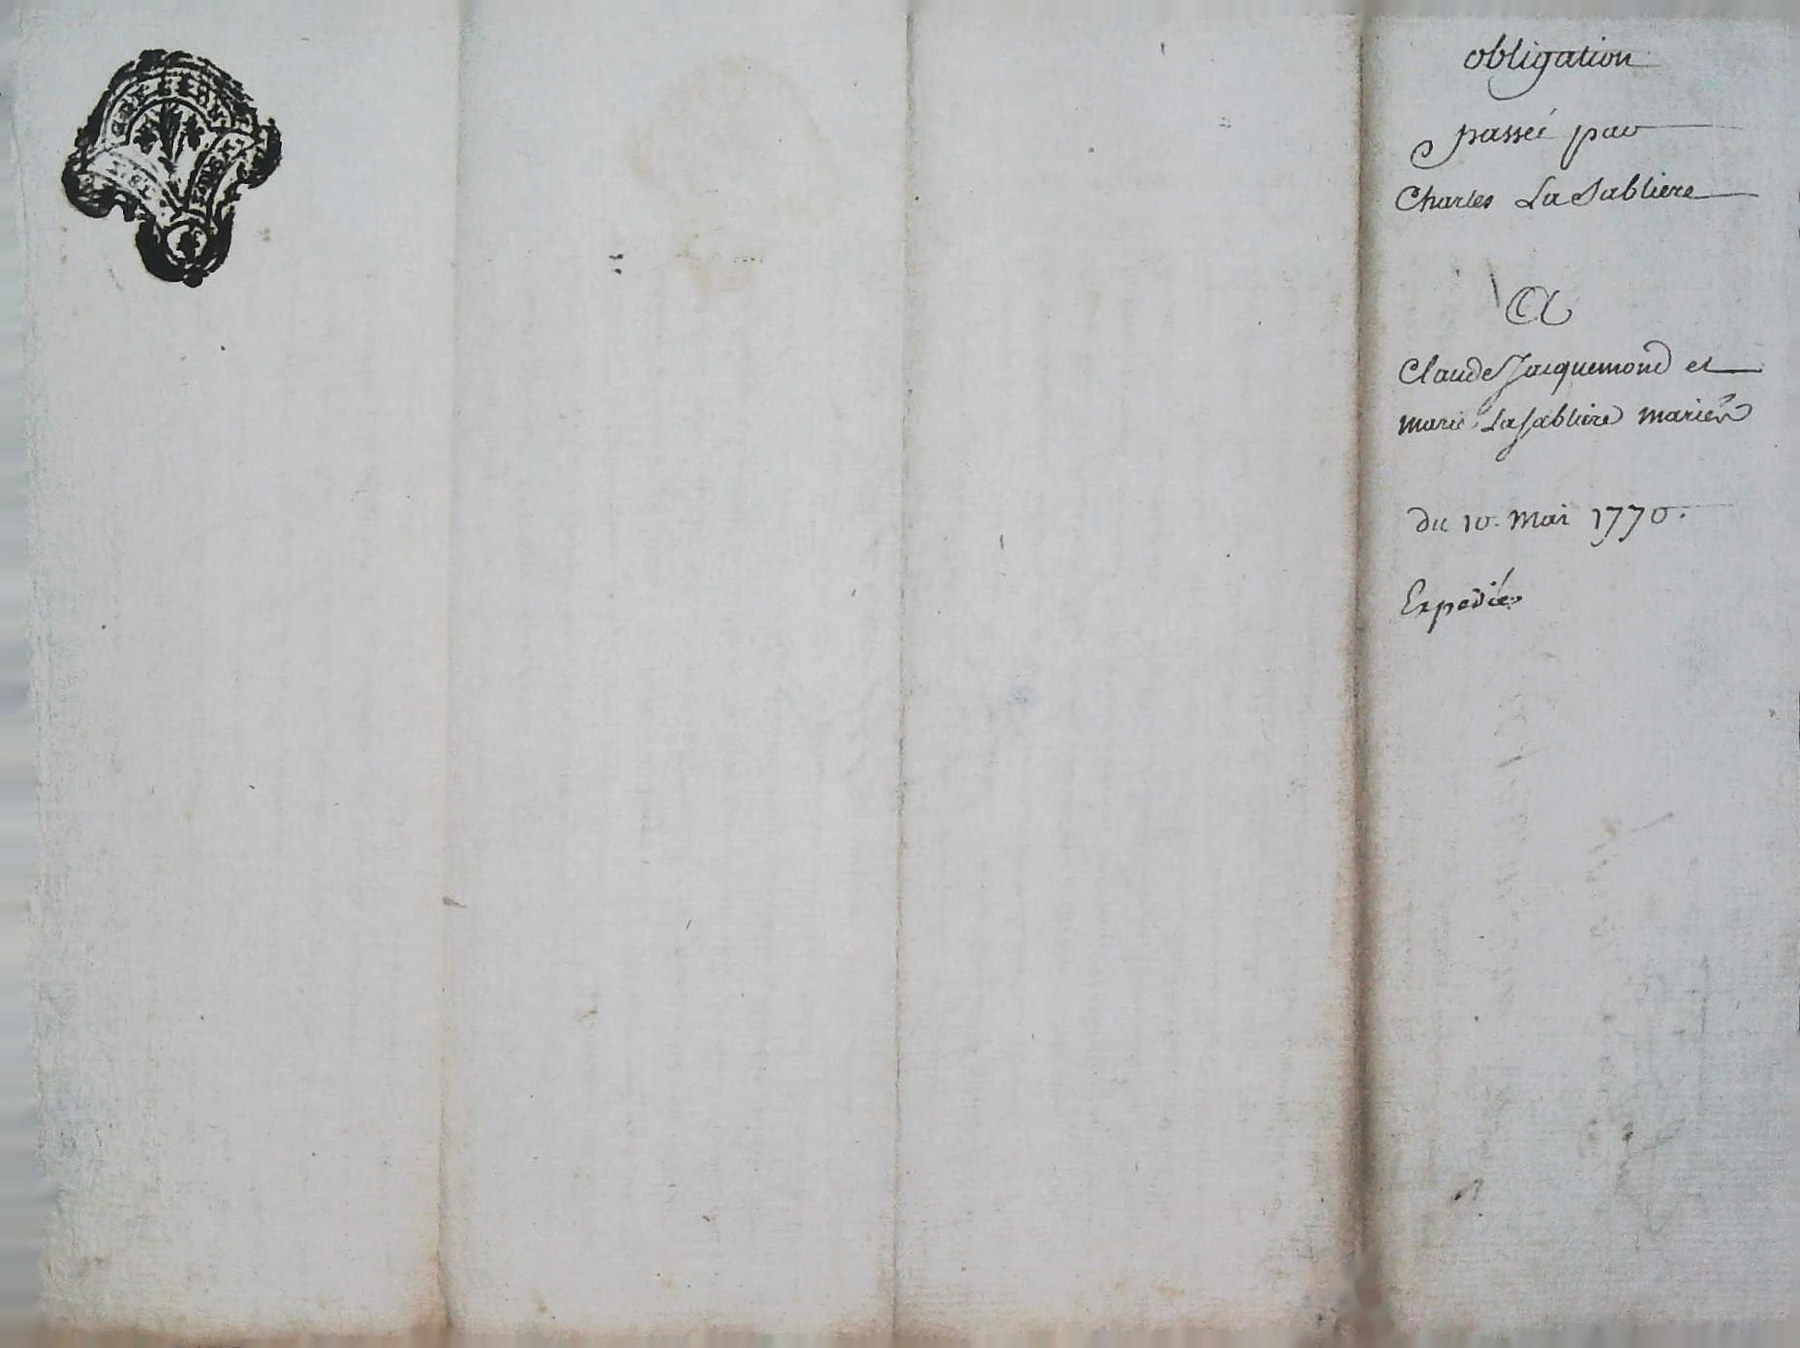 obligation
passée par
Charles La Sabliere
A
Claude Jacquemond et
marie Lasabliere mariés
du 10. Mai 1770.
Expédié